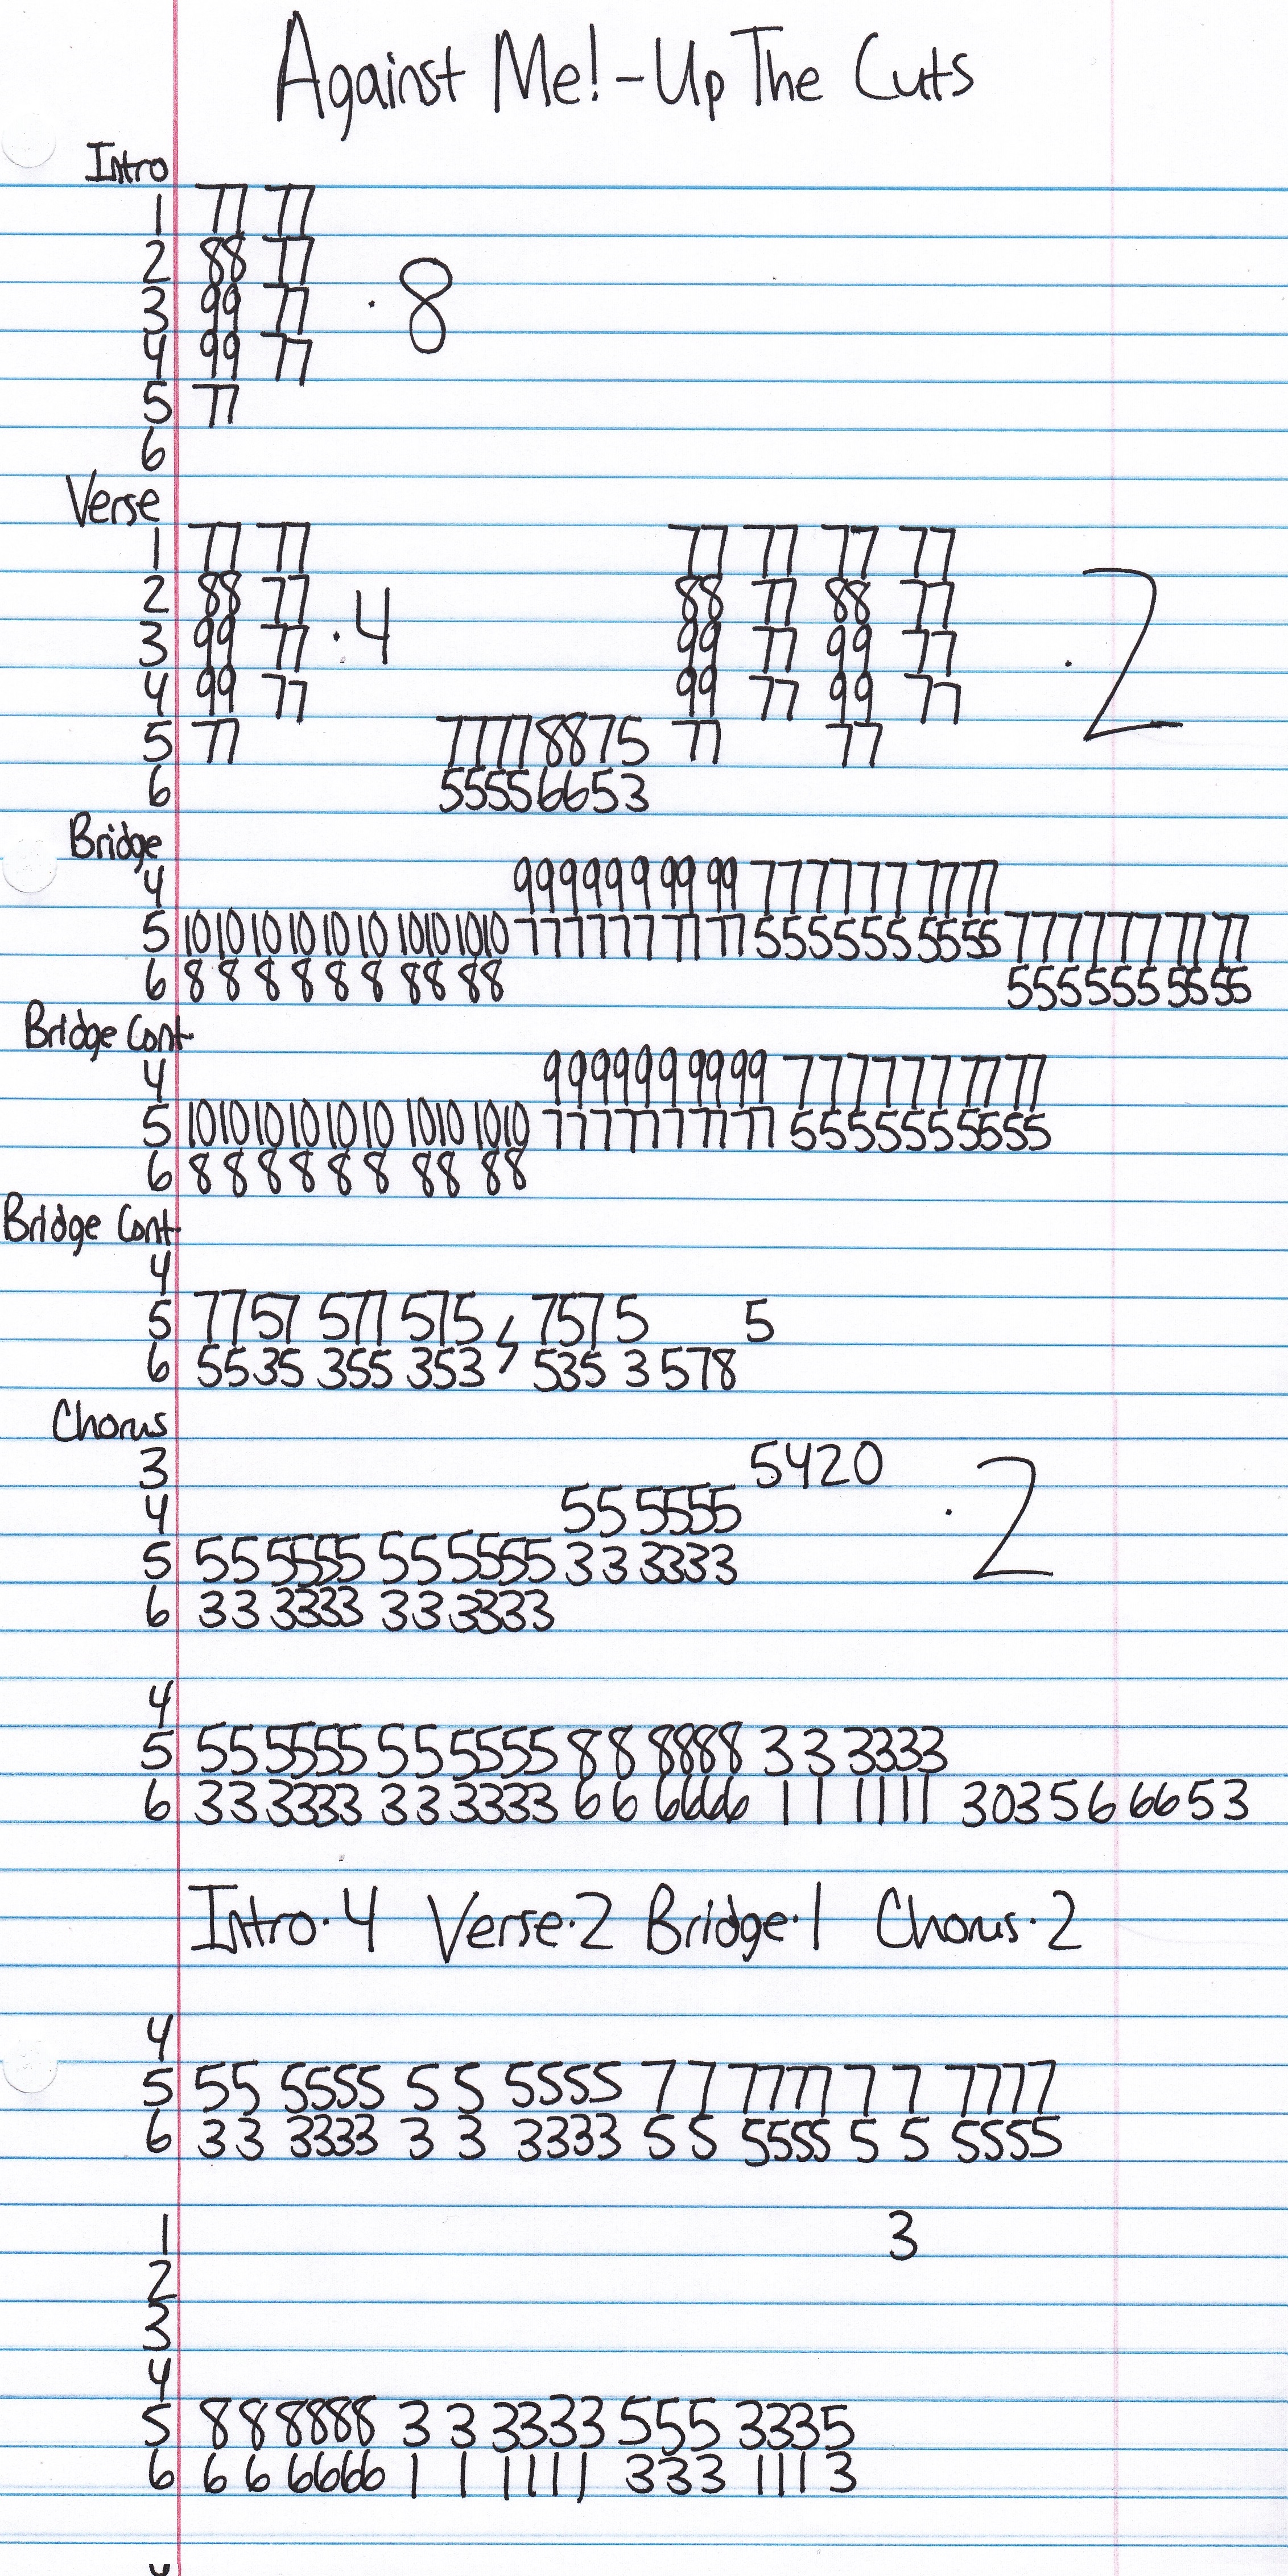 Against Me! - Up The Cuts
Intro
1 77 77
2 88 77
3 99 77 · 8
4 99 77
5 77
6
Verse
1 77 77 77 77 77 77
2 88 77 88 77 88 77
3 99 77 · 4 99 77 99 77 · 2
4 99 77 99 77 99 77
5 77 77778875 77 77
6 55556653
Bridge
4 999999 99 99 777777 7777
5 10 10 10 10 10 10 1010 1010 777777 77 77 555555 5555 777777 77 77
6 8 8 8 8 8 8 88 88 555555 5555
Bridge Cont.
4 999999 9999 777777 7777
5 10 10 10 10 10 10 1010 1010 777777 77 77 555555 5555
6 8 8 8 8 8 8 88 88
Bridge Cont.
4
5 7757 577 575, 757 5 5
6 5535 355 353 535 3 578
Chorus
3 5420
4 55 5555 · 2
5 55 5555 55 5555 33 3333
6 33 3333 33 3333
4
5 55 5555 55 5555 88 8888 33 3333
6 33 3333 33 3333 66 6666 11 1111 303566653
Intro·4 Verse·2 Bridge·1 Chorus·2
4
5 55 5555 5 5 5555 77 7777 7 7 7777
6 33 3333 3 3 3333 55 5555 5 5 5555
1 3
2
3
4
5 88 8888 3 3 3333 555 3335
6 6 6 6666 1 1 1111 333 1113